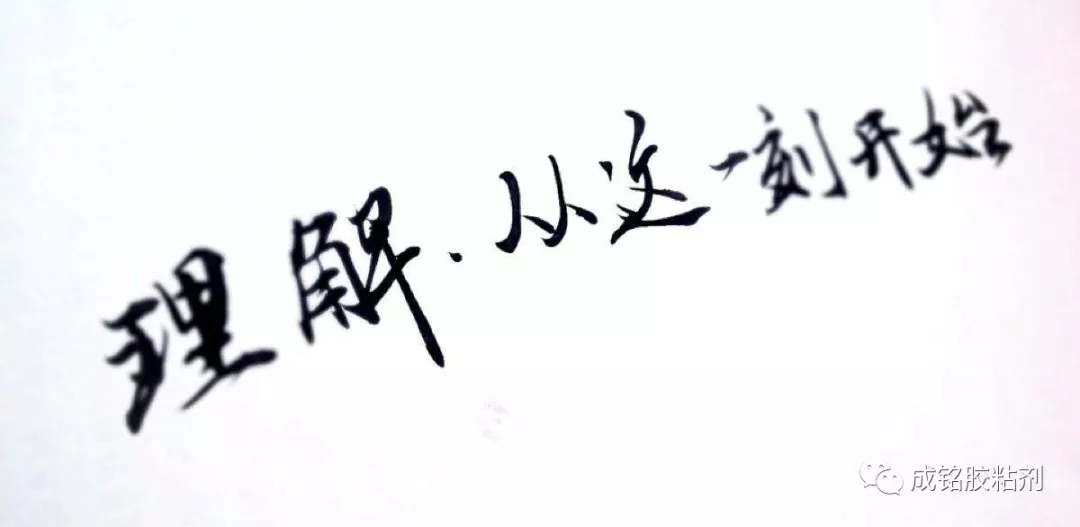 理解.从这一刻开始
成铭胶粘剂